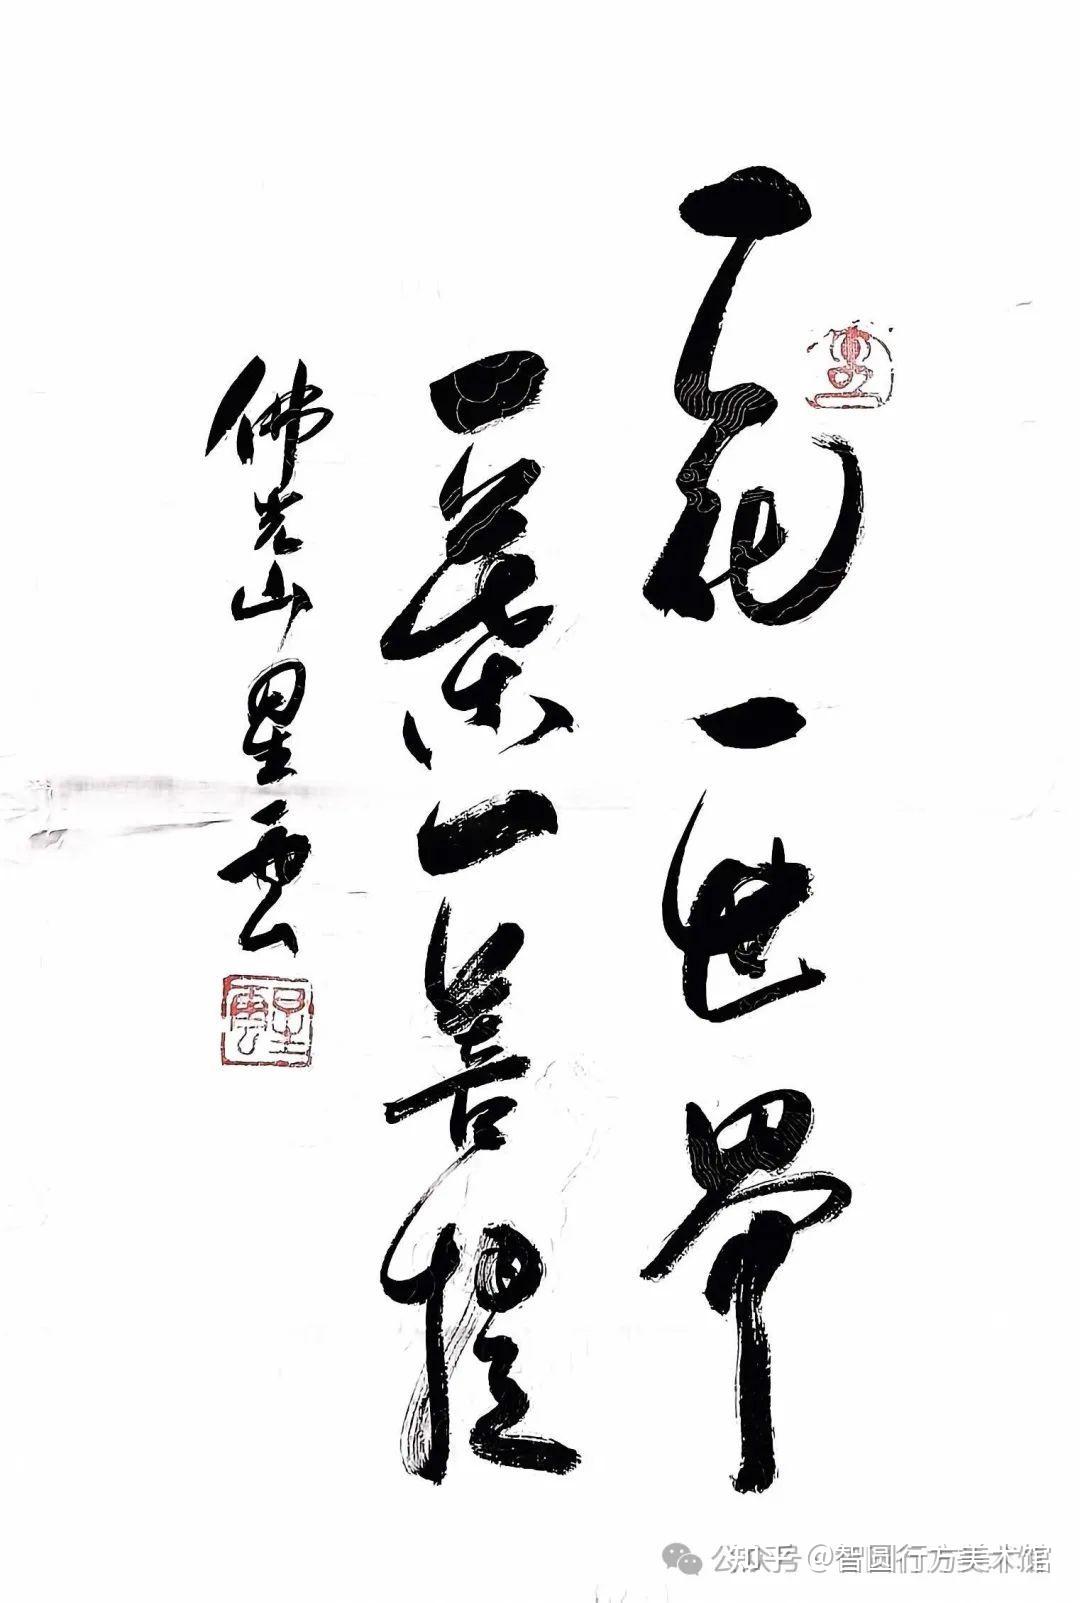 一花一世界
一葉一菩提
佛光山星雲
星雲
知乎 @智圆行方美术馆